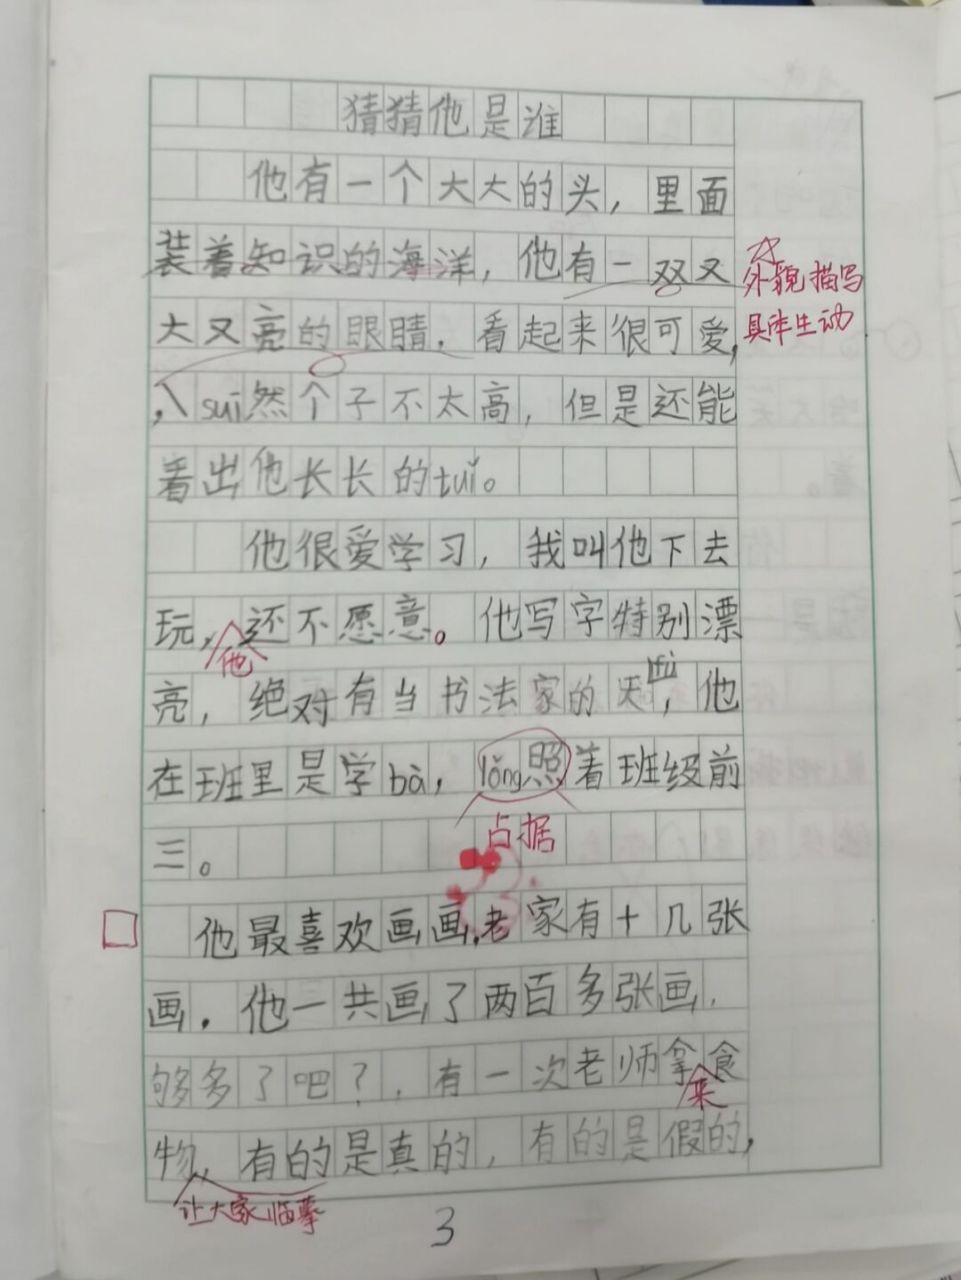 猜猜他是谁
他有一个大大的头，里面
装着知识的海洋，他有一双又
外貌描写
大又亮的眼睛，看起来很可爱，
具体生动
，sui然个子不太高，但是还能
看出他长长的tuǐ。
他很爱学习，我叫他下去
玩，还不愿意。他写字特别漂
他
亮，绝对有当书法家的天fù，他
在班里是学bà，lǒng照着班级前
占据
三。
他最喜欢画画，老家有十几张
画．他一共画了两百多张画．
够多了吧？，有一次老师拿食
来
物，有的是真的，有的是假的，
让大家临摹
3